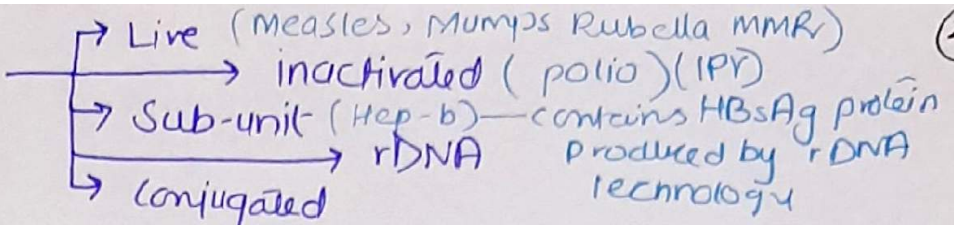 Live (Measles, Mumps Rubella MMR)
inactivated (polio) (IPV)
Sub-unit (Hep-b) — contains HBsAg protein
rDNA produced by rDNA
Conjugated technology